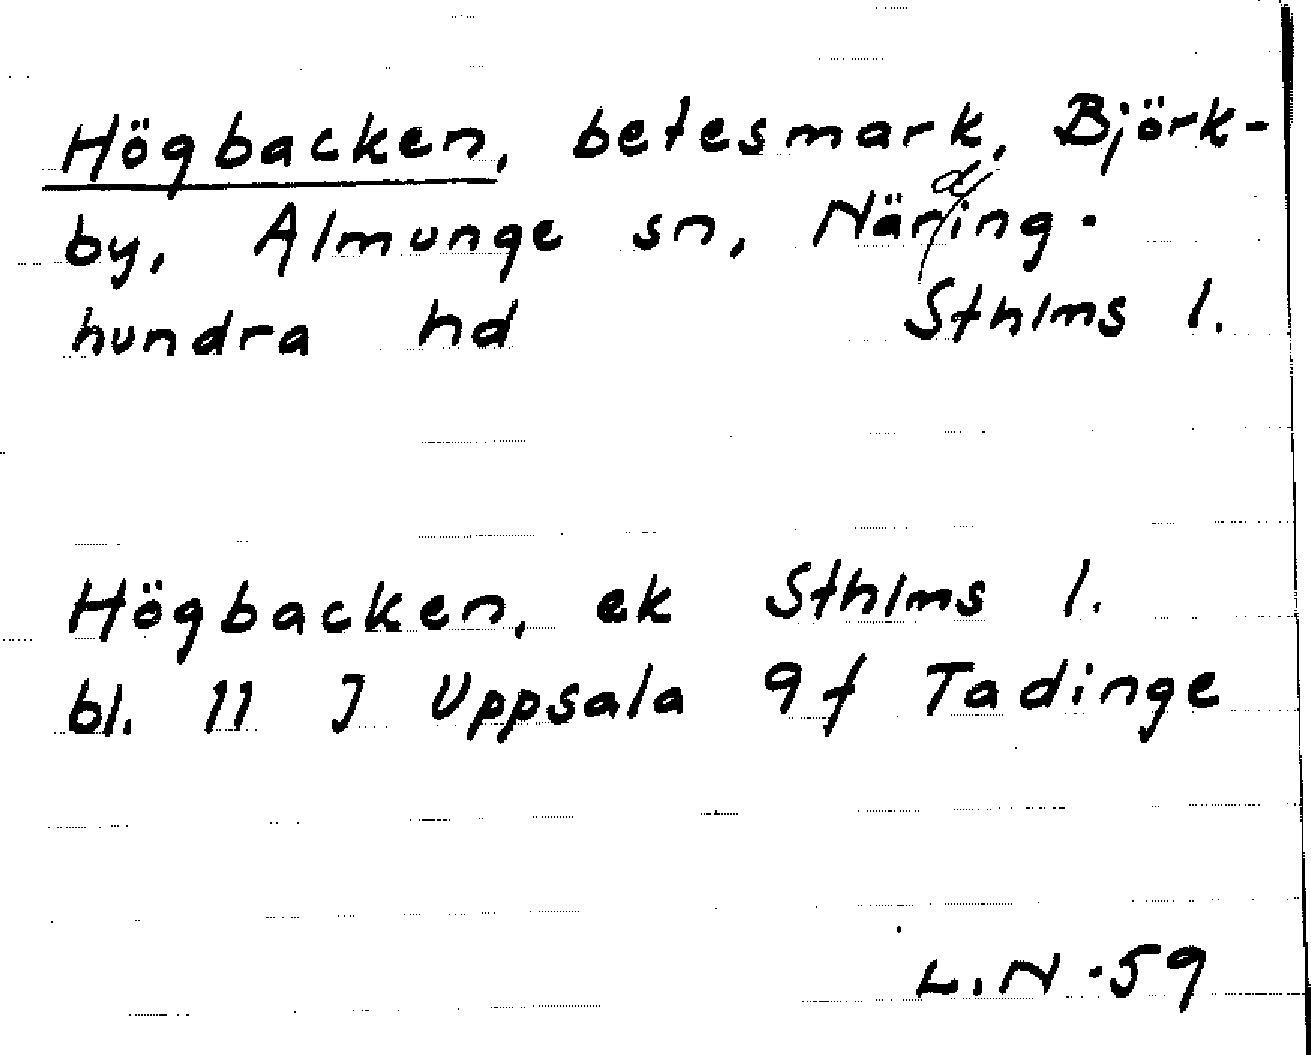 Högbacken, betesmark, Björk-
by, Almunge sn, Närding-
hundra hd Sthlms l.
Högbacken, ek Sthlms l.
bl. 11 J Uppsala 9f Tadinge
L.N -59